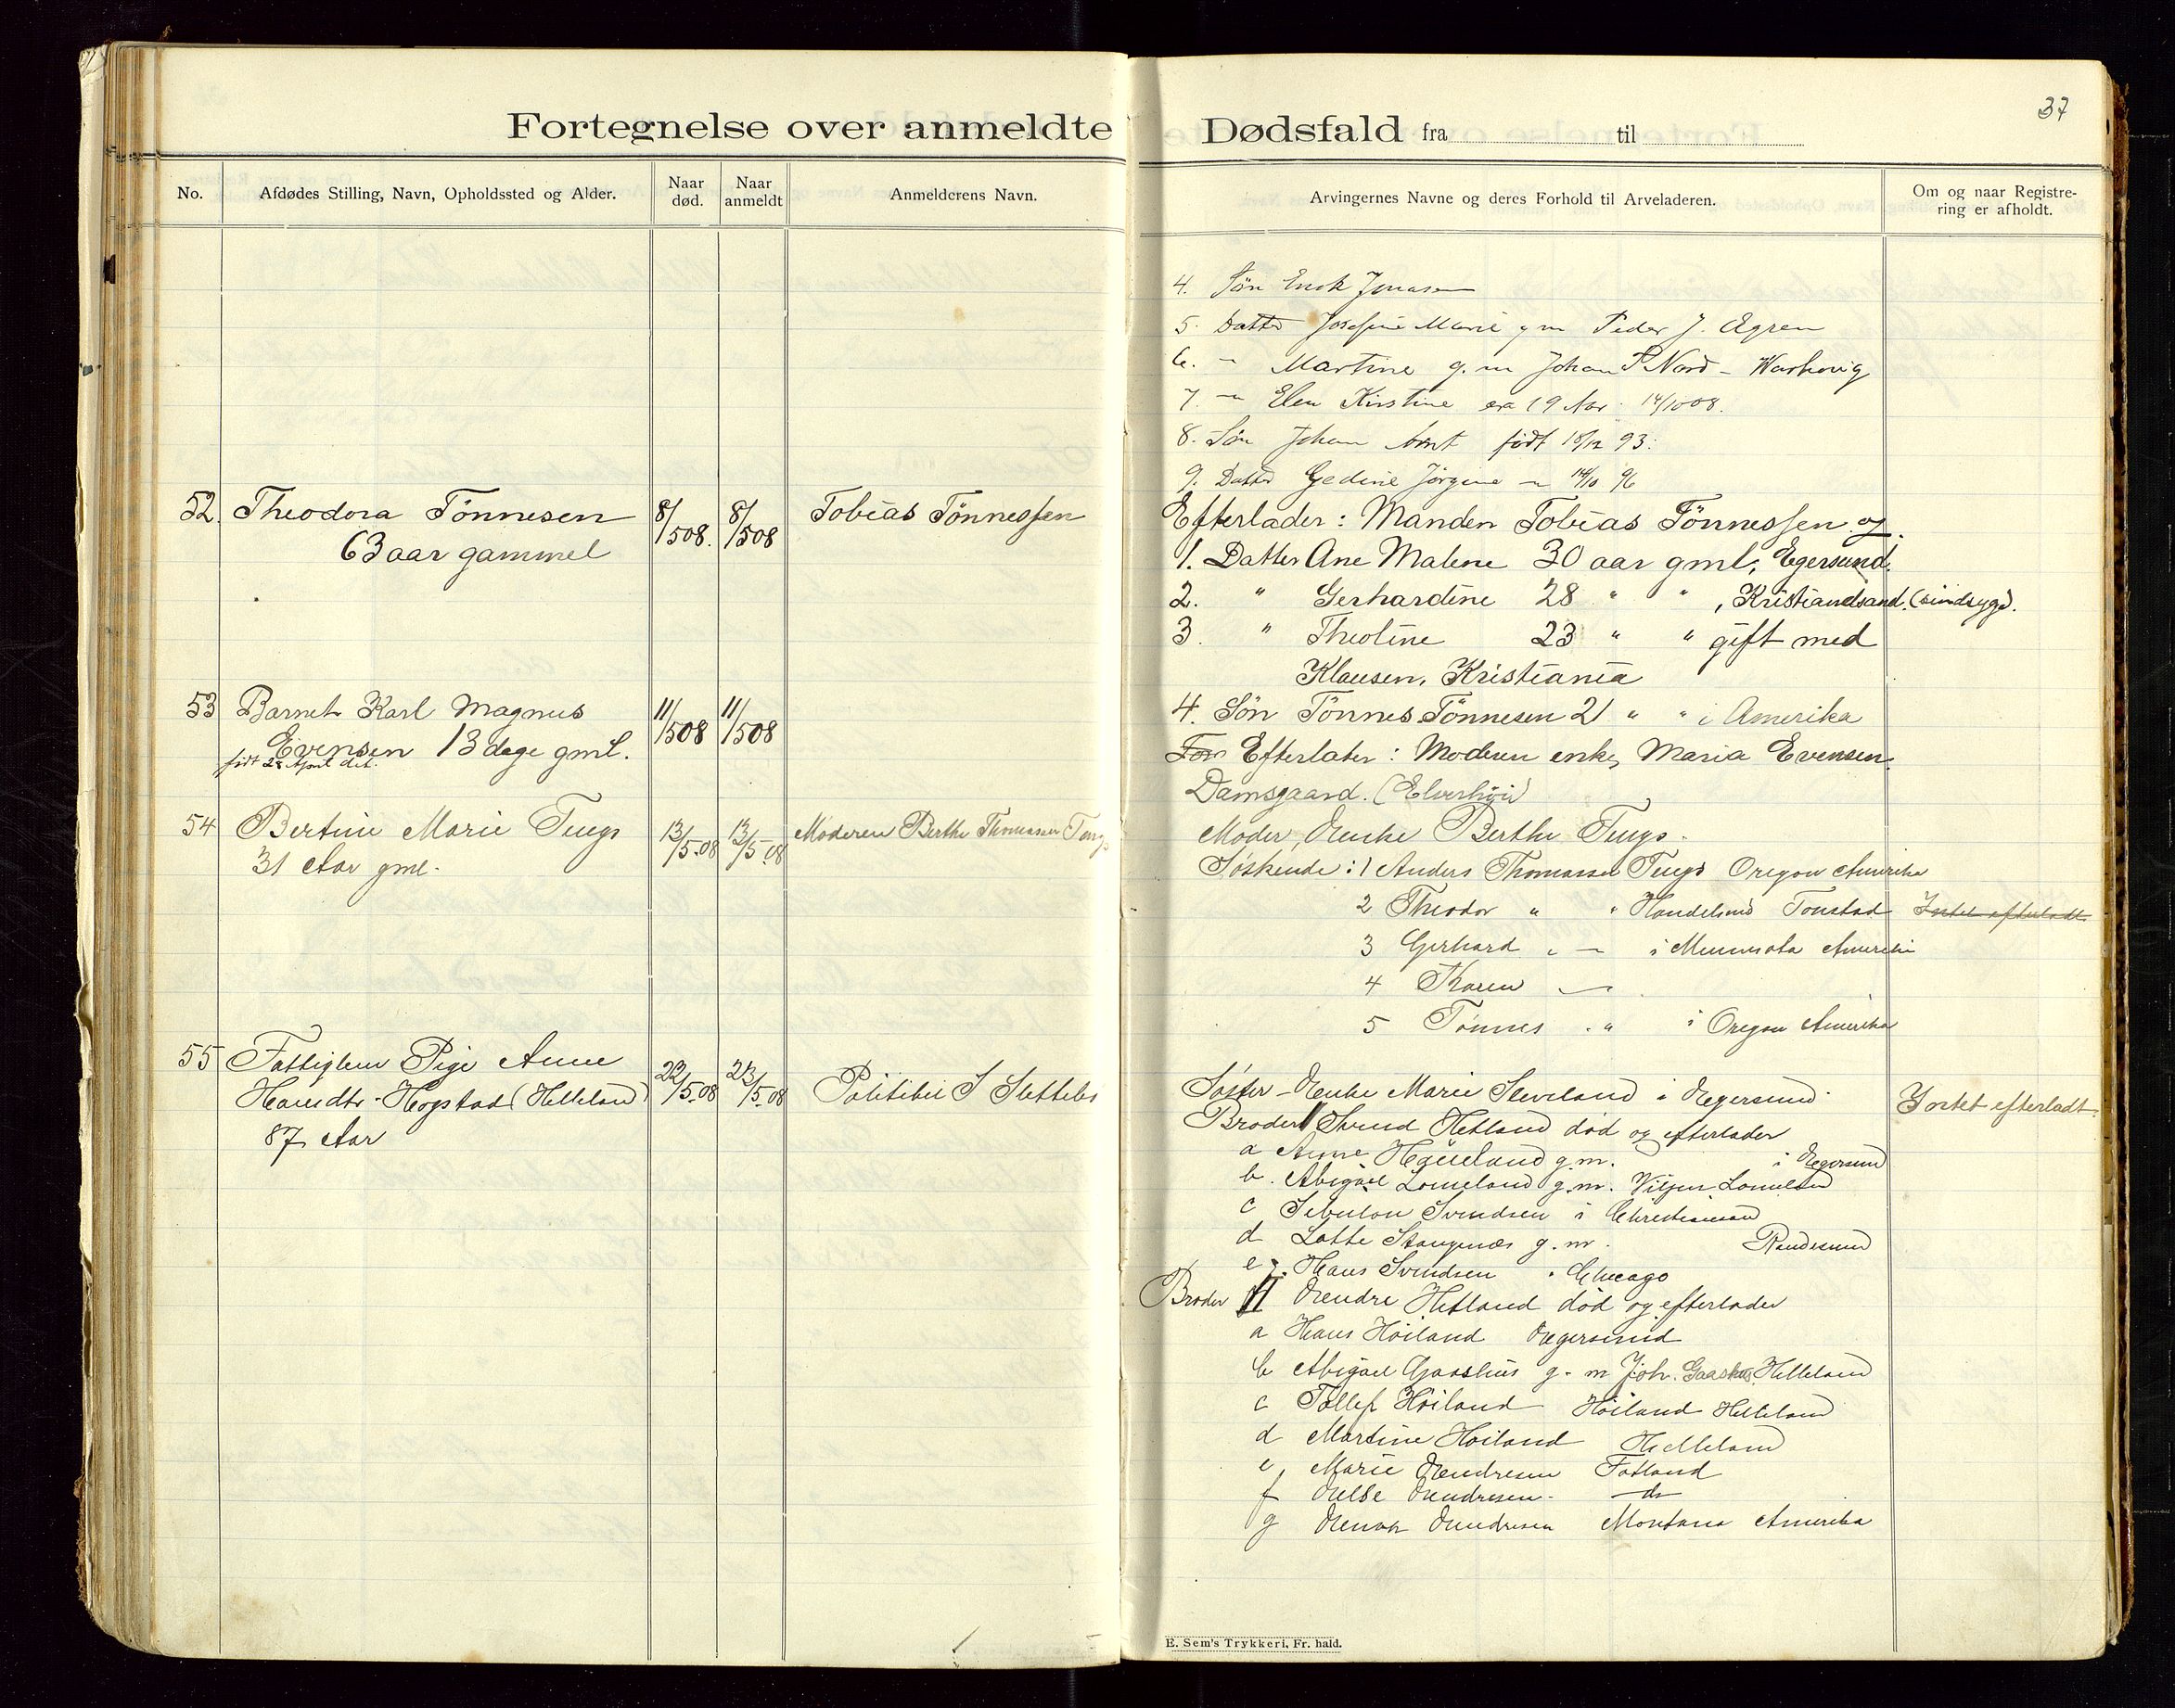 37
Fortegnelse over anmeldte Dødsfald fra til
No.
Afdødes Stilling, Navn, Opholdssted og Alder.
Naar død.
Naar anmeldt
Anmelderens Navn.
Arvingernes Navne og deres Forhold til Arveladeren.
Om og naar Registre-
ring er afholdt.
4. Søn Enok Jonasen
5. Datter Josefine Marie g m Peder J. Ågren
6. " Martine g. m Johan P Nord - Warhovig
7. " Elen Kirstine 19 Aar 14/10 08.
8. Søn Johan født 18/12 93.
9. Datter Gedine Jørgine " 14/10 96
52. Theodora Tönnesen
63 aar gammel
8/508. 8/508
Tobias Tönnessen
Efterlader: Manden Tobias Tönnessen og
1. Datter Ane Malene 30 aar gml, Egersund.
2. " Gerhardine 28 " " , Kristiandsand. (sindsyg).
3. " Theoline 23 " " gift med
Klausen, Kristiania
4. Søn Tönnes Tönnesen 21 " " i Amerika
53 Barnet Karl Magnus
Evensen 13 dage gml.
født 28 April
11/508 11/508
Efterlater: Moderen enke, Maria Evensen.
Damsgaard. (Elverhøi)
54 Bertine Marie Tengs
31 Aar gml.
13/5.08 13/5.08
Moderen Berthe Thomassen Tengs
Moder, Enke Berthe Tengs.
Søskende: 1 Anders Thomassen Tengs Oregon Amerika
2 Theodor " " Handelsmd Tonstad Intet efterladt.
3 Gerhard " — i Minnesota Amerika
4 Karen —
5 Tønnes " " i Oregon Amerika
55 Fattiglem Pige Anne
Hansdtr. Høgstad (Helleland)
87 Aar
22/5.08 23/5.08
Politibet S Slettebø
Søster - Enke Marie Leveland i Egersund.
Intet efterladt.
Broder I Svend Hetland død og efterlader
a Anne Håüeland g.m. i Egersund
b. Abigael Lomeland g.m. Lomeland
c Sebulon Svendsen i Christiansand
d Lotte Stangenæs g.m. Randesund
e Hans Svendsen " Chicago
Broder II Endre Hetland død og efterlader
a Hans Høiland Egersund
b Abigael Gaashus g. m Joh. Gaashus, Helleland
c Tollef Høiland Høiland Helleland
d Martine Høiland Helleland
e, Marie Endresen Fotland
f Else Endresen. do
g Enok Endresen Montana Amerika
E. Sem's Trykkeri, Fr. hald.